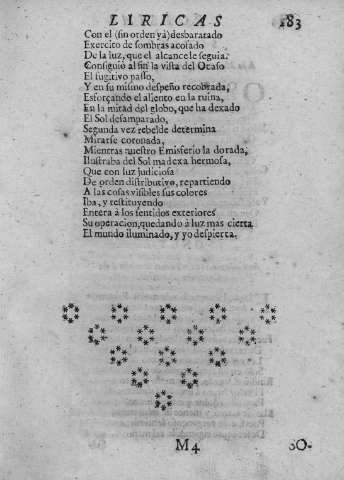 LIRICAS 183
Con el (sin orden yà) desbaratado
Exercito de sombras acosado
De la luz, que el alcance le seguia:
Consiguiò al fin la vista del Ocaso
El fugitivo passo,
Y en su mismo despeño recobrada,
Esforçando el aliento en la ruina,
En la mitad del globo, que ha dexado
El Sol desamparado,
Segunda vez rebelde determina
Mirarse coronada,
Mientras nuestro Emisferio la dorada,
Ilustraba del Sol madexa hermosa,
Que con luz judiciosa
De orden distributivo, repartiendo
A las cosas visibles sus colores
Iba, y restituyendo
Entera à los sentidos exteriores
Su operacion, quedando à luz mas cierta
El mundo iluminado, y yo despierta.
M4 SO-